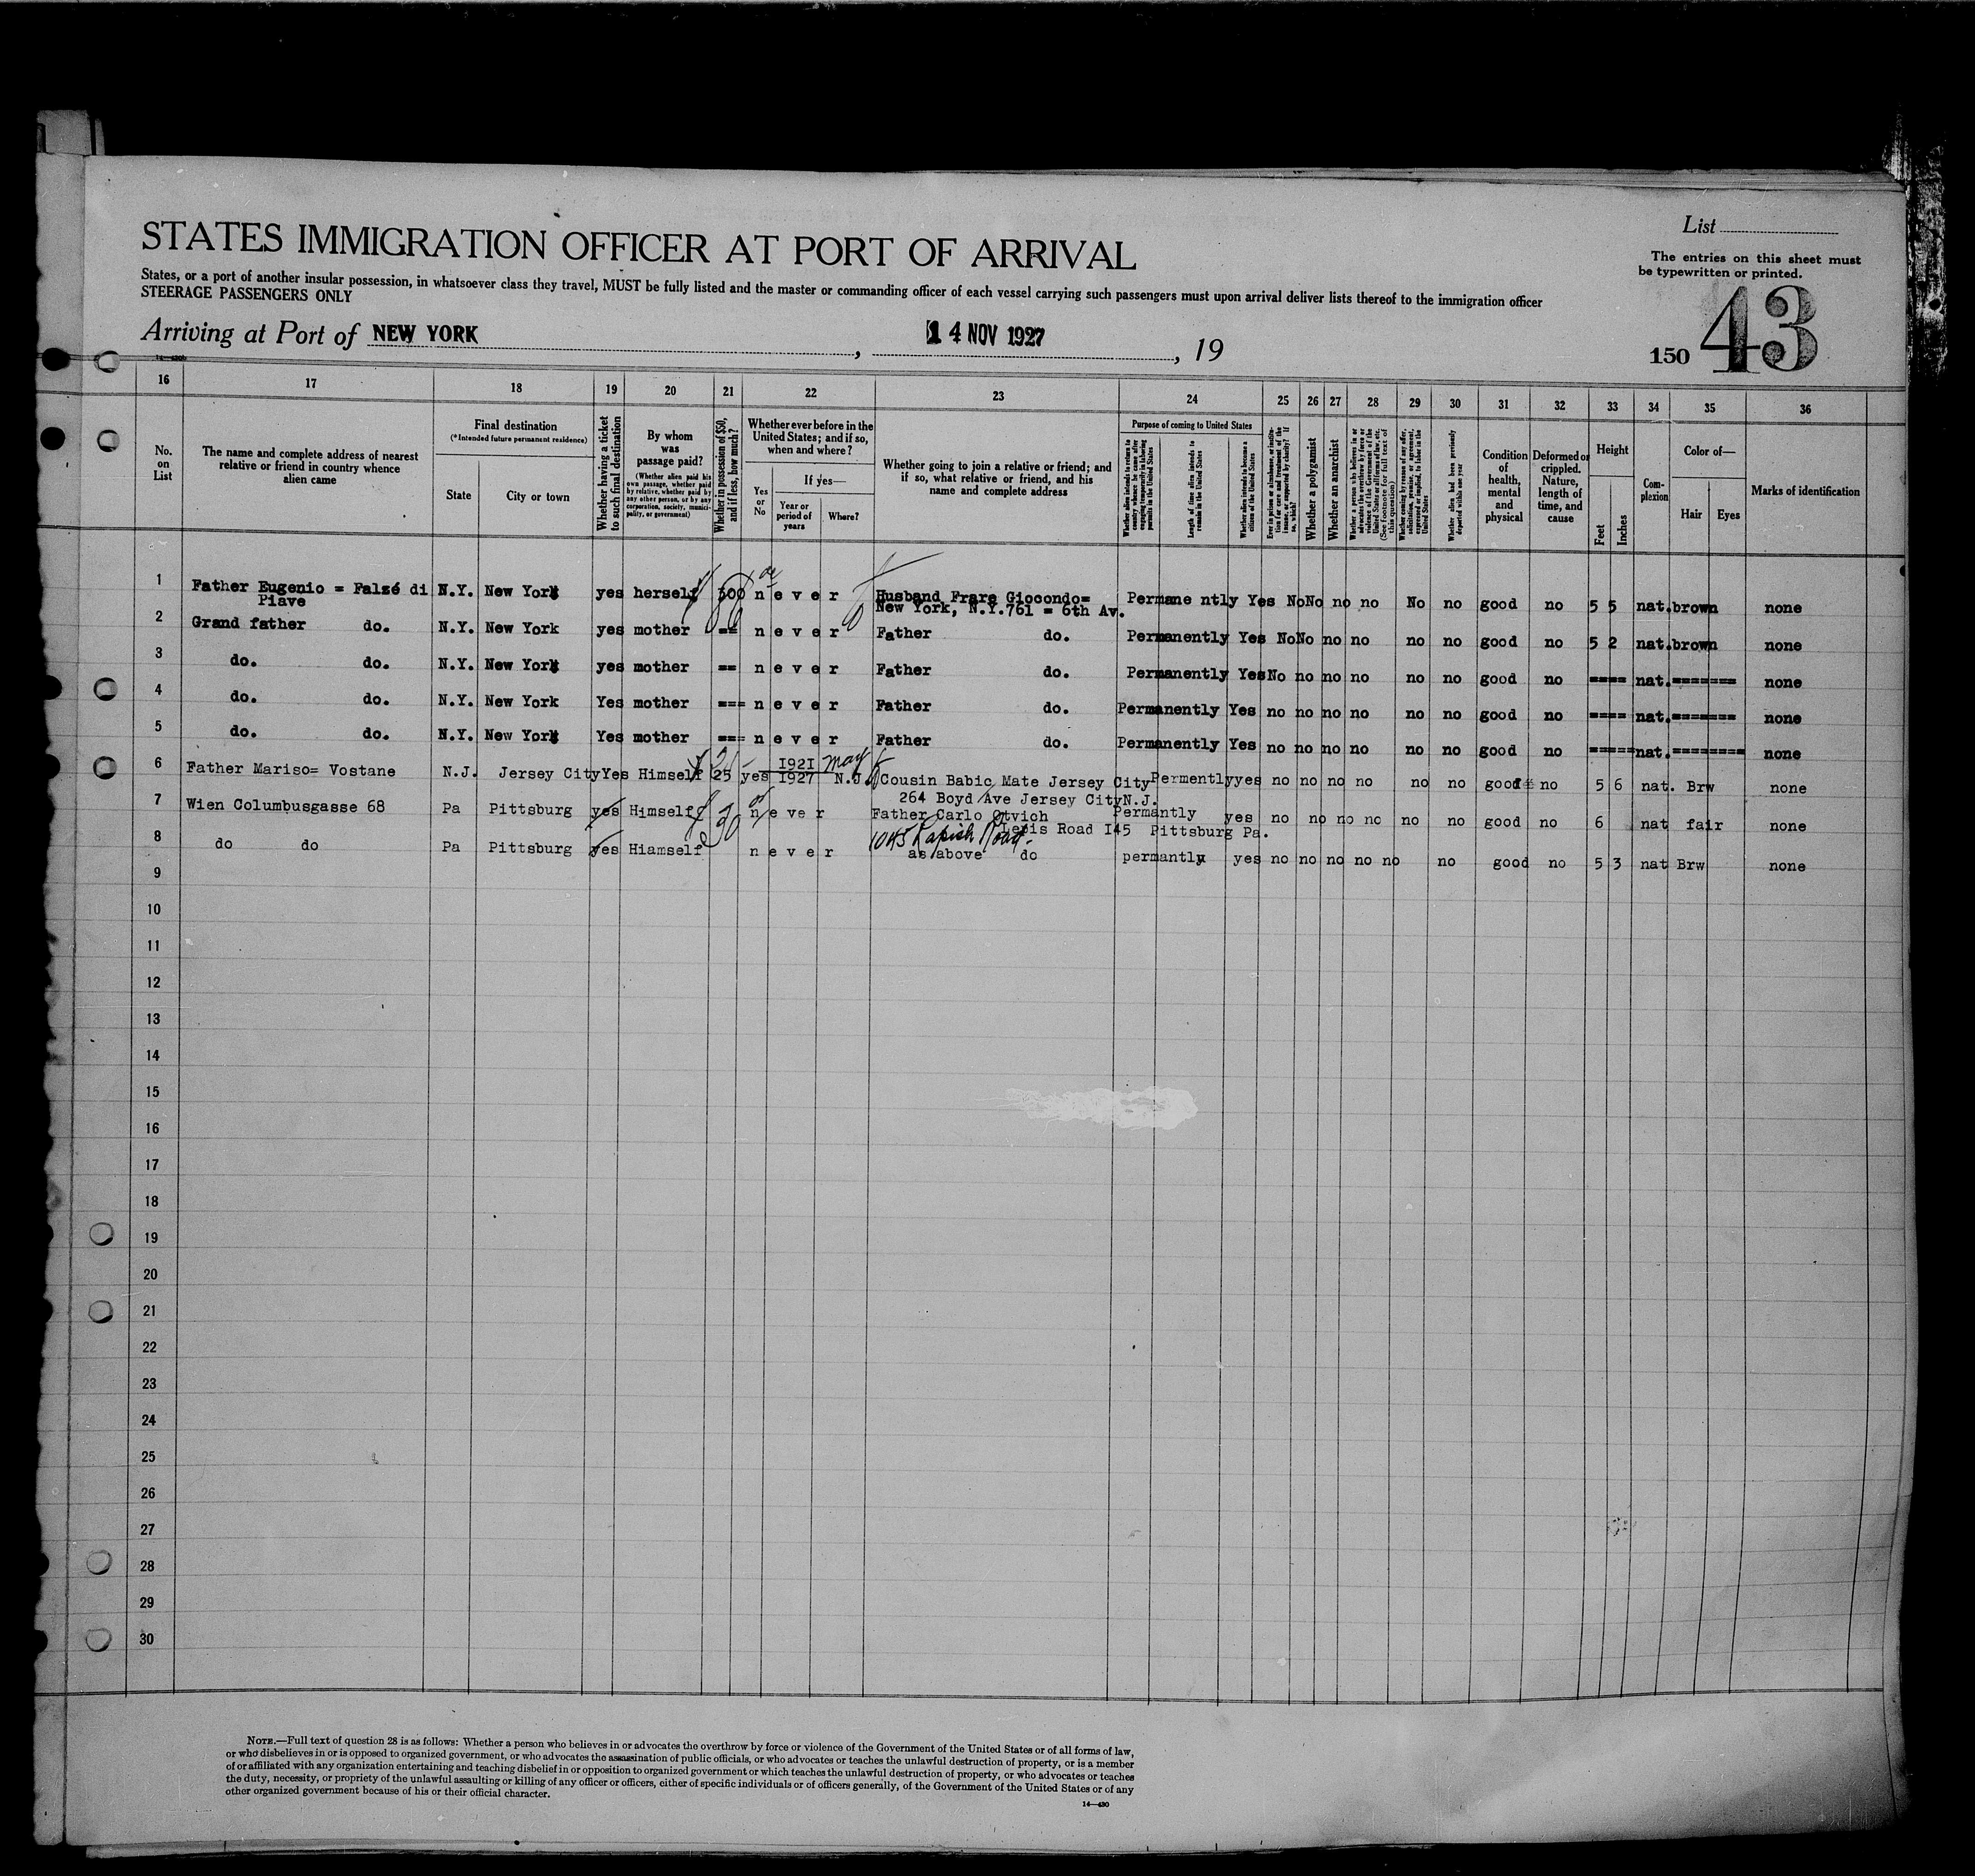 STATES IMMIGRATION OFFICER AT PORT OF ARRIVAL
List
The entries on this sheet must
be typewritten or printed.
States, or a port of another insular possession, in whatsoever class they travel, MUST be fully listed and the master or commanding officer of each vessel carrying such passengers must upon arrival deliver lists thereof to the immigration officer
STEERAGE PASSENGERS ONLY
Arriving at Port of NEW YORK , 14 NOV 1927 , 19
150 43
16 17 18 19 20 21 22 23 24 25 26 27 28 29 30 31 32 33 34 35 36
No.
on
List
The name and complete address of nearest
relative or friend in country whence
alien came
Final destination
(*Intended future permanent residence)
State
City or town
Whether having a ticket
to such final destination
By whom
was
passage paid?
(Whether alien paid his
own passage, whether paid
by relative, whether paid by
any other person, or by any
corporation, society, munici-
pality, or government)
Whether in possession of $50,
and if less, how much?
Whether ever before in the
United States; and if so,
when and where?
Yes
or
No
If yes—
Year or
period of
years
Where?
Whether going to join a relative or friend; and
if so, what relative or friend, and his
name and complete address
Purpose of coming to United States
Whether alien intends to return to
country whence he came after
engaging temporarily in laboring
pursuits in the United States
Length of time alien intends to
remain in the United States
Whether alien intends to become a
citizen of the United States
Ever in prison or almshouse, or institu-
tion for care and treatment of the
insane, or supported by charity? If
so, which?
Whether a polygamist
Whether an anarchist
Whether a person who believes in or
advocates the overthrow by force or
violence of the Government of the
United States or all forms of law, etc.
(See footnote for full text of
this question)
Whether coming by reason of any offer,
solicitation, promise, or agreement,
expressed or implied, to labor in the
United States
Whether alien had been previously
deported within one year
Condition
of
health,
mental
and
physical
Deformed or
crippled.
Nature,
length of
time, and
cause
Height
Feet
Inches
Com-
plexion
Color of—
Hair
Eyes
Marks of identification
1 Father Eugenio = Falzé di N.Y. New York yes herself 300 n e v e r Husband Frare Giocondo= Permane ntly Yes No No no no No no good no 5 5 nat. brown none
Piave New York, N.Y.761 = 6th Av.
2 Grand father do. N.Y. New York yes mother == n e v e r Father do. Permanently Yes No No no no no no good no 5 2 nat. brown none
3 do. do. N.Y. New York yes mother == n e v e r Father do. Permanently Yes No no no no no no good no ==== nat. ======= none
4 do. do. N.Y. New York Yes mother === n e v e r Father do. Permanently Yes no no no no no no good no ==== nat. ======= none
5 do. do. N.Y. New York Yes mother === n e v e r Father do. Permanently Yes no no no no no no good no ===== nat. ======== none
6 Father Mariso= Vostane N.J. Jersey City Yes Himself 25 yes I92I 1927 may N.J. Cousin Babic Mate Jersey City Permently yes no no no no no no good no 5 6 nat. Brw none
264 Boyd Ave Jersey City N.J.
7 Wien Columbusgasse 68 Pa Pittsburg yes Himself 30 n e v e r Father Carlo Otvich Permantly yes no no no no no no good no 6 nat fair none
1045 Road Road I45 Pittsburg Pa.
8 do do Pa Pittsburg yes Hiamself n e v e r as above do permantly yes no no no no no no good no 5 3 nat Brw none
9
10
11
12
13
14
15
16
17
18
19
20
21
22
23
24
25
26
27
28
29
30
NOTE.—Full text of question 28 is as follows: Whether a person who believes in or advocates the overthrow by force or violence of the Government of the United States or of all forms of law,
or who disbelieves in or is opposed to organized government, or who advocates the assassination of public officials, or who advocates or teaches the unlawful destruction of property, or is a member
of or affiliated with any organization entertaining and teaching disbelief in or opposition to organized government or which teaches the unlawful destruction of property, or who advocates or teaches
the duty, necessity, or propriety of the unlawful assaulting or killing of any officer or officers, either of specific individuals or of officers generally, of the Government of the United States or of any
other organized government because of his or their official character.
14—430